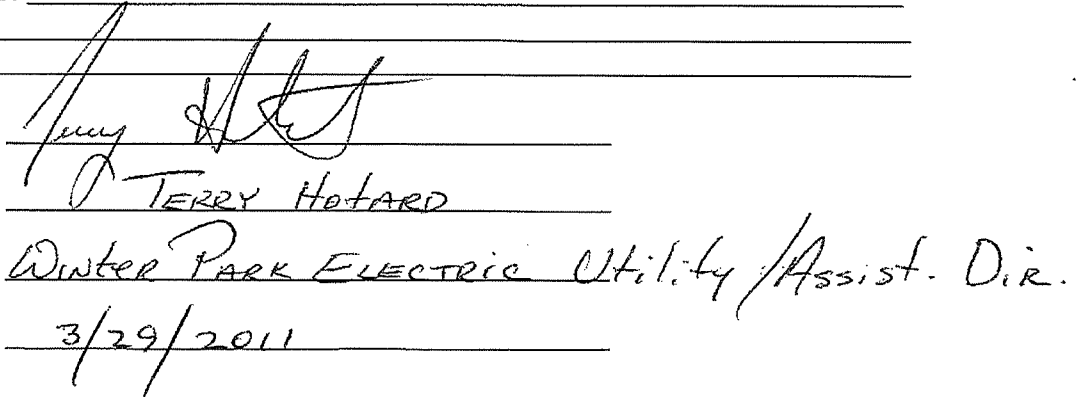 Terry Hotard
TERRY HOTARD
WINTER PARK ELECTRIC Utility/Assist. Dir.
3/29/2011